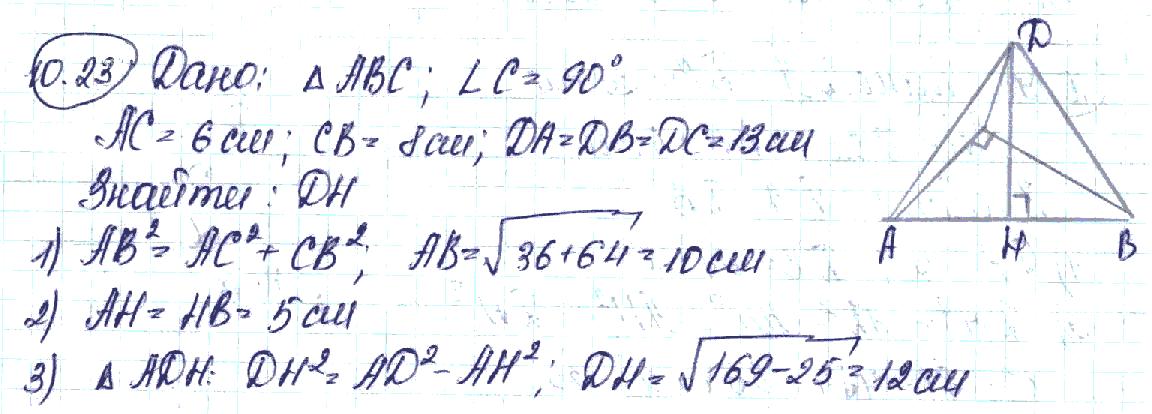 10.23 Дано: △ ABC; ∠C = 90°
AC = 6 см; CB = 8 см; DA = DB = DC = 13 см
Знайти: DH
1) AB² = AC² + CB²; AB = √36+64 = 10 см
2) AH = HB = 5 см
3) △ ADH: DH² = AD² - AH²; DH = √169-25 = 12 см
D
A H B